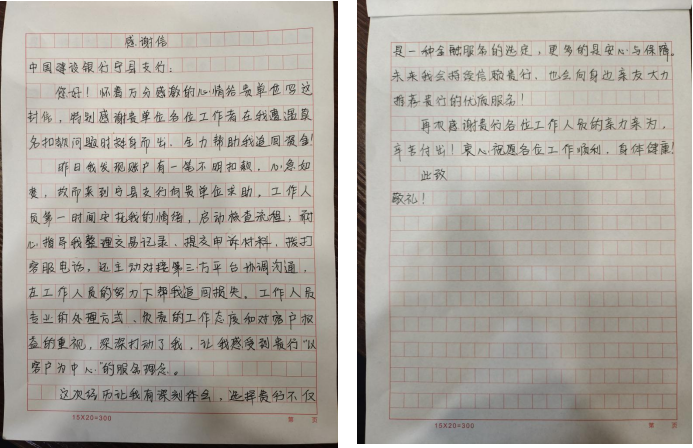 感谢信
中国建设银行宁县支行：
您好！怀着万分感激的心情给贵单位写这
封信，特别感谢贵单位各位工作者在我遭遇莫
名扣款问题时挺身而出，全力帮助我追回资金！
昨日我发现账户有一笔不明扣款，心急如
焚，故而来到宁县支行向贵单位求助。工作人
员第一时间安抚我的情绪，启动核查流程；耐
心指导我整理交易记录、提交申诉材料，拨打
客服电话，还主动对接第三方平台协调沟通，
在工作人员的努力下帮我追回损失。工作人员
专业的处理方式、负责的工作态度和对客户权
益的重视，深深打动了我，让我感受到贵行“以
客户为中心”的服务理念。
这次经历让我有深刻体会，选择贵行不仅
15X20=300
第 页
是一种金融服务的选定，更多的是安心与保障。
未来我会持续信赖贵行，也会向身边亲友大力
推荐贵行的优质服务！
再次感谢贵行各位工作人员的亲力亲为，
辛苦付出！衷心祝愿各位工作顺利，身体健康！
此致
敬礼！
15X20=300
第 页